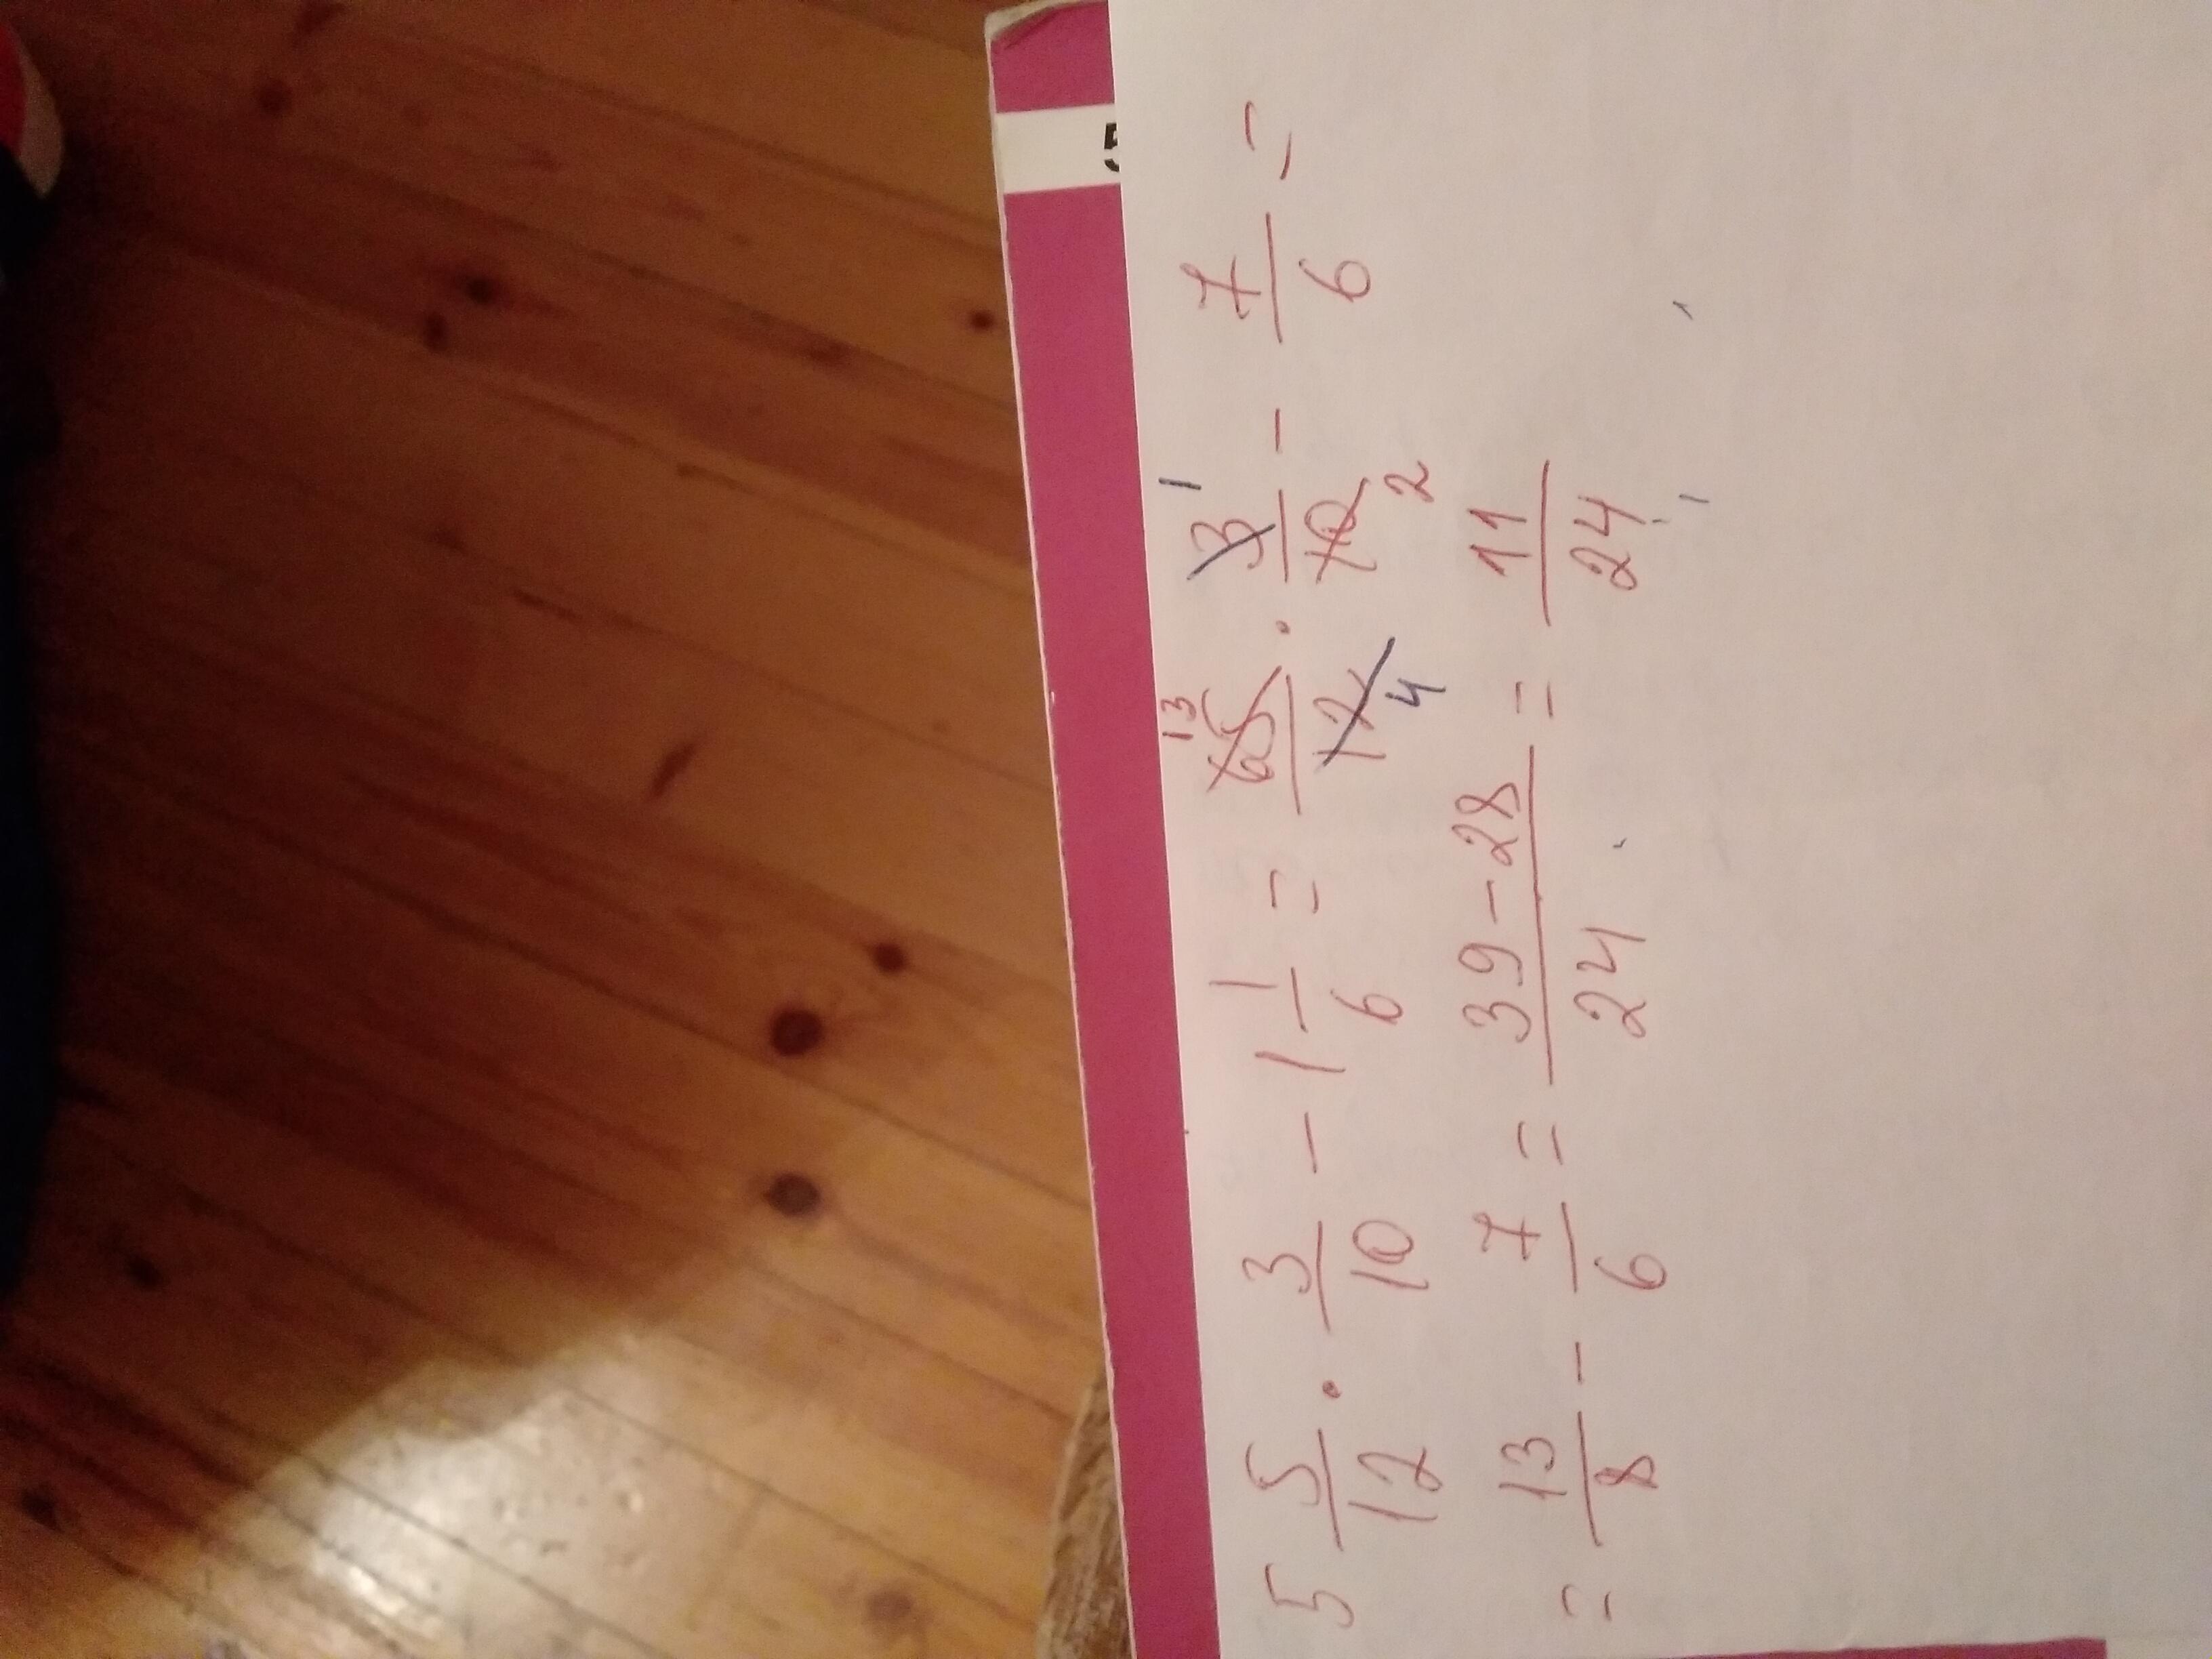 5 5/12 · 3/10 - 1 1/6 = 65/12 · 3/10 - 7/6 =
= 13/8 - 7/6 = 39-28/24 = 11/24